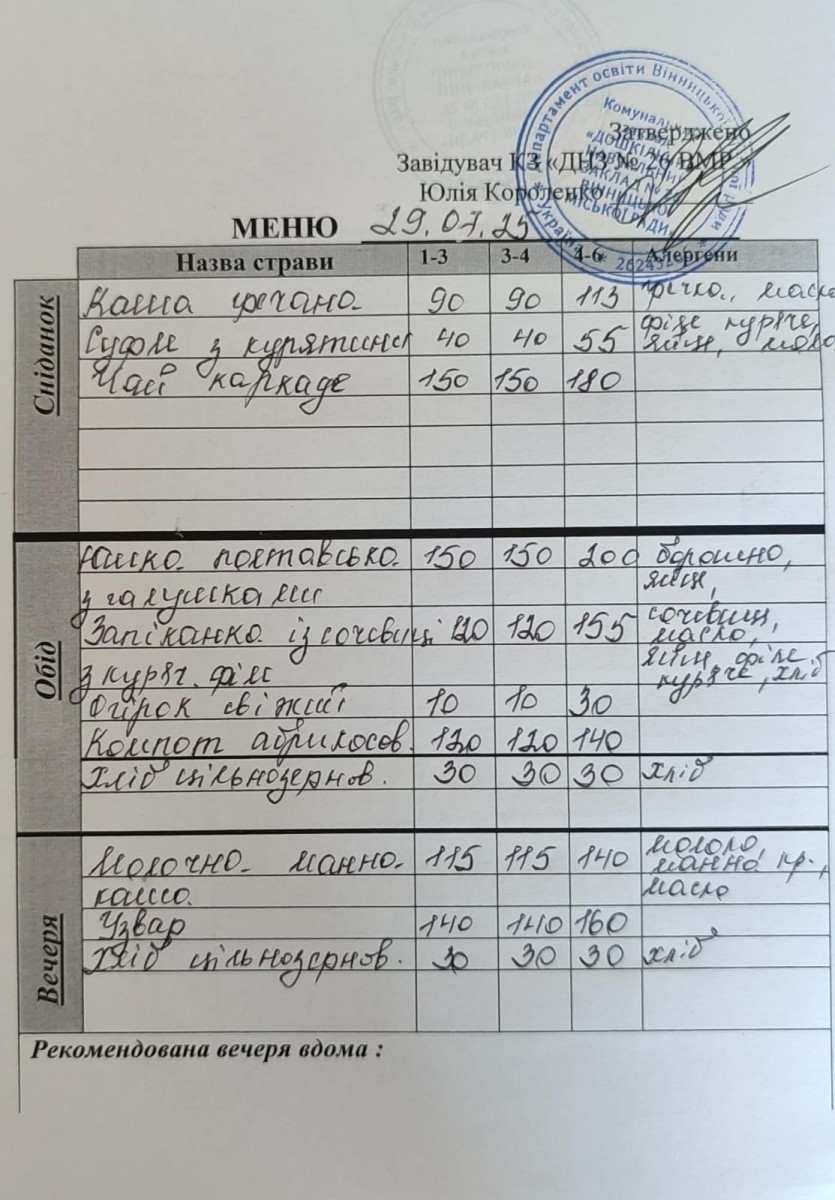 Затверджено
Завідувач КЗ «ДНЗ № 26 ВМР»
Юлія Короленко
МЕНЮ 29.07.25
Назва страви 1-3 3-4 4-6 Алергени
Сніданок
Каша гречана 90 90 113 гречка, масло
Суфле з курятини 40 40 55 філе куряче,
яйця, моло
Чай каркаде 150 150 180
Обід
Юшка полтавська 150 150 200 борошно,
з галушками яйця,
Запіканка із сочевиці 120 120 155 сочевиця,
масло,
з куряч. філе яйця, філе
куряче, хліб
Огірок свіжий 10 10 30
Компот абрикосов. 120 120 140
Хліб цільнозернов. 30 30 30 хліб
Вечеря
Молочна манна 115 115 140 молоко,
манна кр.,
каша масло
Узвар 140 140 160
Хліб цільнозернов. 30 30 30 хліб
Рекомендована вечеря вдома :